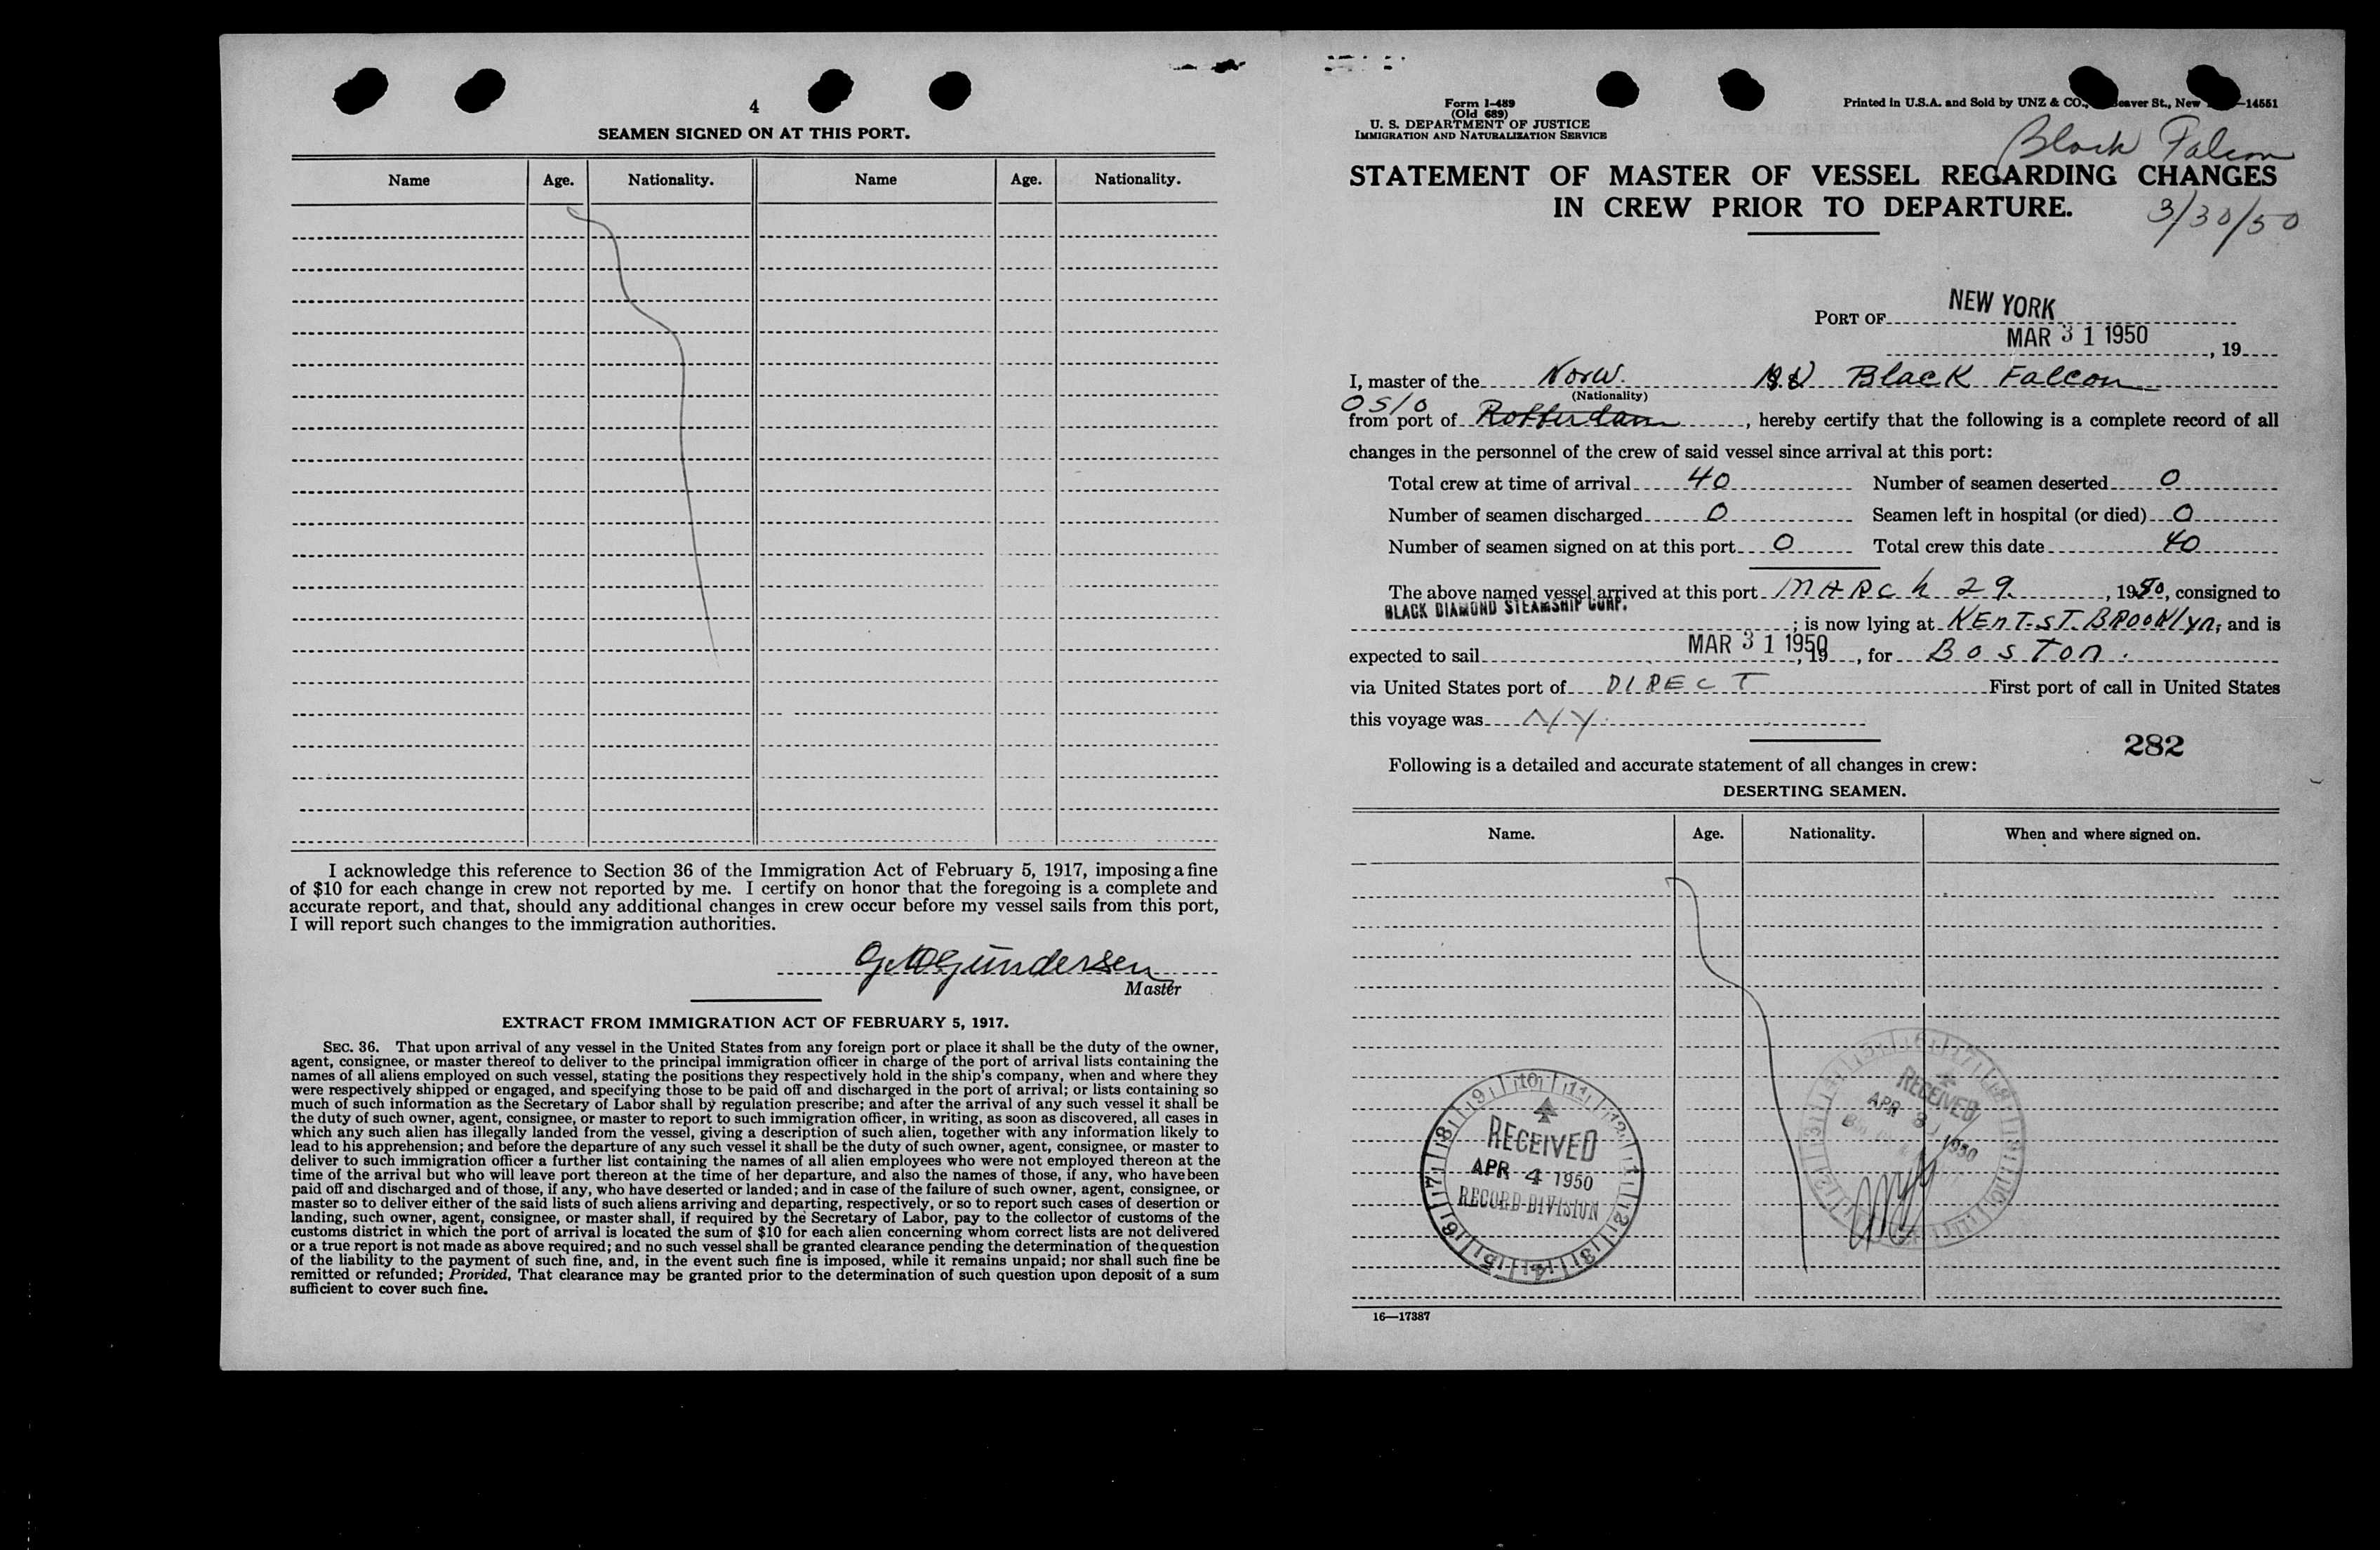 4
SEAMEN SIGNED ON AT THIS PORT.
Name Age. Nationality. Name Age. Nationality.
I acknowledge this reference to Section 36 of the Immigration Act of February 5, 1917, imposing a fine
of $10 for each change in crew not reported by me. I certify on honor that the foregoing is a complete and
accurate report, and that, should any additional changes in crew occur before my vessel sails from this port,
I will report such changes to the immigration authorities.
Gundersen
Master
EXTRACT FROM IMMIGRATION ACT OF FEBRUARY 5, 1917.
SEC. 36. That upon arrival of any vessel in the United States from any foreign port or place it shall be the duty of the owner,
agent, consignee, or master thereof to deliver to the principal immigration officer in charge of the port of arrival lists containing the
names of all aliens employed on such vessel, stating the positions they respectively hold in the ship's company, when and where they
were respectively shipped or engaged, and specifying those to be paid off and discharged in the port of arrival; or lists containing so
much of such information as the Secretary of Labor shall by regulation prescribe; and after the arrival of any such vessel it shall be
the duty of such owner, agent, consignee, or master to report to such immigration officer, in writing, as soon as discovered, all cases in
which any such alien has illegally landed from the vessel, giving a description of such alien, together with any information likely to
lead to his apprehension; and before the departure of any such vessel it shall be the duty of such owner, agent, consignee, or master to
deliver to such immigration officer a further list containing the names of all alien employees who were not employed thereon at the
time of the arrival but who will leave port thereon at the time of her departure, and also the names of those, if any, who have been
paid off and discharged and of those, if any, who have deserted or landed; and in case of the failure of such owner, agent, consignee, or
master so to deliver either of the said lists of such aliens arriving and departing, respectively, or so to report such cases of desertion or
landing, such owner, agent, consignee, or master shall, if required by the Secretary of Labor, pay to the collector of customs of the
customs district in which the port of arrival is located the sum of $10 for each alien concerning whom correct lists are not delivered
or a true report is not made as above required; and no such vessel shall be granted clearance pending the determination of the question
of the liability to the payment of such fine, and, in the event such fine is imposed, while it remains unpaid; nor shall such fine be
remitted or refunded; Provided, That clearance may be granted prior to the determination of such question upon deposit of a sum
sufficient to cover such fine.
Form I-489
(Old 689)
U. S. DEPARTMENT OF JUSTICE
IMMIGRATION AND NATURALIZATION SERVICE
Printed in U.S.A. and Sold by UNZ & CO., eaver St., New —14551
Black Falcon
STATEMENT OF MASTER OF VESSEL REGARDING CHANGES
IN CREW PRIOR TO DEPARTURE.
3/30/50
PORT OF NEW YORK
MAR 31 1950, 19
I, master of the Norw. Black Falcon
(Nationality)
Oslo
from port of Rotterdam, hereby certify that the following is a complete record of all
changes in the personnel of the crew of said vessel since arrival at this port:
Total crew at time of arrival 40 Number of seamen deserted 0
Number of seamen discharged 0 Seamen left in hospital (or died) 0
Number of seamen signed on at this port 0 Total crew this date 40
The above named vessel arrived at this port MARCh 29. , 1950, consigned to
BLACK DIAMOND STEAMSHIP CORP. ; is now lying at KEnT. ST. BROOKlyn, and is
expected to sail MAR 31 1950, 19, for BosTon.
via United States port of DIRECT First port of call in United States
this voyage was NY.
282
Following is a detailed and accurate statement of all changes in crew:
DESERTING SEAMEN.
Name. Age. Nationality. When and where signed on.
RECEIVED
APR 4 1950
RECORD DIVISION
RECEIVED
APR 3 1950
16—17387